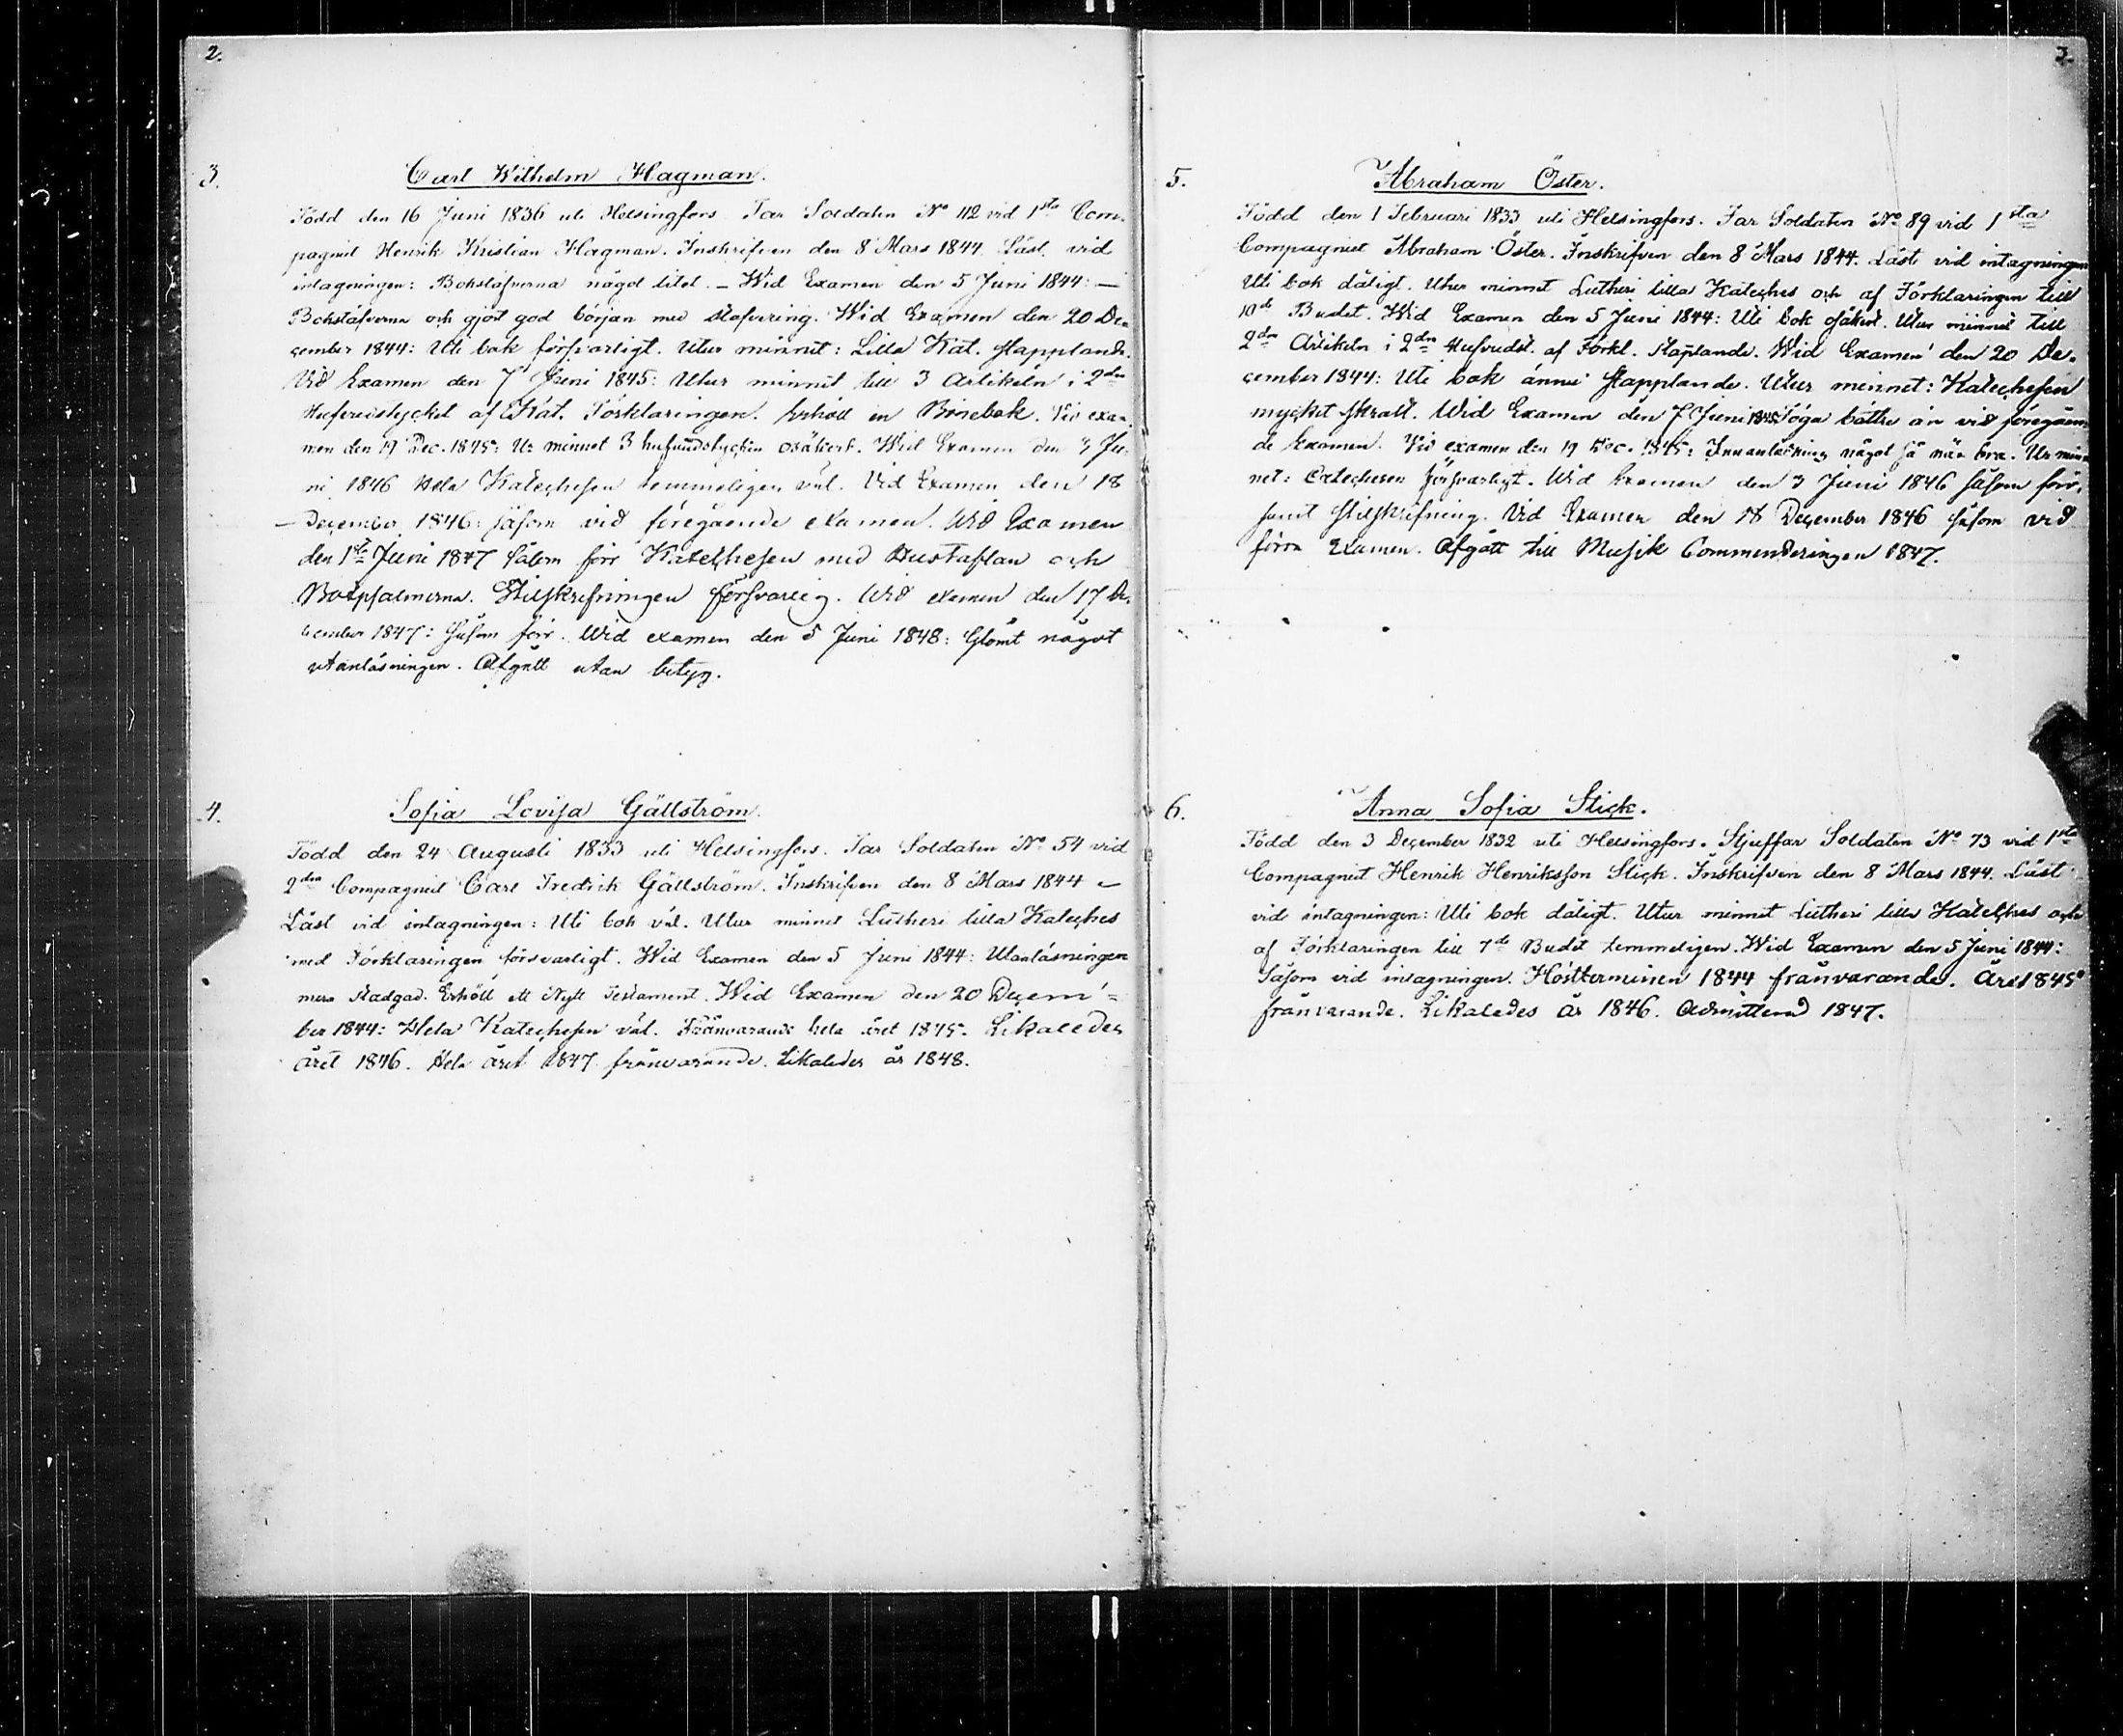 2.
3.
Carl Wilhelm Hagman.
Född den 16 Juni 1836 uti Helsingfors. Far Soldaten No 112 vid 1sta Com-
pagniet Henrik Kristian Hagman. Inskrifven den 8 Mars 1844. Läst vid
intagningen: Bokstäfverna något litet. – Wid Examen den 5 Juni 1844: –
Bokstäfverna och gjort god början med stafvering. Wid Examen den 20 De-
cember 1844: Uti bok försvarligt. Utur minnet: Lilla Kat. stapplande.
Vid Examen den 7 Juni 1845: Utur minnet till 3 Artikeln i 2dra
Hufvudstycket af Kat. Förklaringen. Erhöll en Bönebok. Vid exa-
men den 19 Dec. 1845: Ur minnet 3 hufvudstycken osäkert. Wid Examen den 3 Ju-
ni 1846 Hela Katechesen temmeligen väl. Vid Examen den 18
December 1846: såsom vid föregående examen. Wid Examen
den 1sta Juni 1847 såsom förr Katechesen med Hustaflan och
Botpsalmerna. Stilskrifningen försvarlig. Wid examen den 17 De-
cember 1847: såsom förr. Wid examen den 5 Juni 1848: Glömt något
utanläsningen. Afgått utan betyg.
4.
Sofia Lovisa Gällström.
Född den 24 Augusti 1833 uti Helsingfors. Far Soldaten No 54 vid
2dra Compagniet Carl Fredrik Gällström. Inskrifven den 8 Mars 1844
Läst vid intagningen: Uti bok väl. Utur minnet Lutheri lilla Kateches
med Förklaringen försvarligt. Wid Examen den 5 Juni 1844: Utanläsningen
mera stadgad. Erhöll ett Nytt Testament. Wid Examen den 20 Decem-
ber 1844: Hela Katechesen väl. Frånvarande hela året 1845. Likaledes
året 1846. Hela året 1847 frånvarande. Likaledes år 1848.
3.
5.
Abraham Öster.
Född den 1 Februari 1833 uti Helsingfors. Far Soldaten No 89 vid 1sta
Compagniet Abraham Öster. Inskrifven den 8 Mars 1844. Läst vid intagningen
Uti bok dåligt. Utur minnet Lutheri lilla Kateches och af Förklaringen till
10de Budet. Wid Examen den 5 Juni 1844: Uti bok osäkert. Utur minnet till
2dra Artikeln i 2dra Hufvudst. af Förkl. Staplande. Wid Examen den 20 De-
cember 1844: Uti bok ännu stapplande. Utur minnet: Katechesen
mycket skralt. Wid Examen den 7 Juni 1845 Föga bättre än vid föregåen-
de Examen. Vid examen den 19 Dec. 1845: Innanläsning något så när bra. Ur min-
net: Catechesen försvarligt. Wid Examen den 3 Juni 1846 såsom förr,
samt stilskrifning. Vid Examen den 18 December 1846 såsom vid
förra Examen. Afgått till Musik Commenderingen 1847.
6.
Anna Sofia Stick.
Född den 3 December 1832 uti Helsingfors. Stjuffar Soldaten No 73 vid 1sta
Compagniet Henrik Henriksson Stick. Inskrifven den 8 Mars 1844. Läst
vid intagningen: Uti bok dåligt. Utur minnet Lutheri lilla Kateches och
af Förklaringen till 7de Budet temmeligen. Wid Examen den 5 Juni 1844:
Såsom vid intagningen. Höstterminen 1844 frånvarande. Året 1845
frånvarande. Likaledes år 1846. Admitterad 1847.